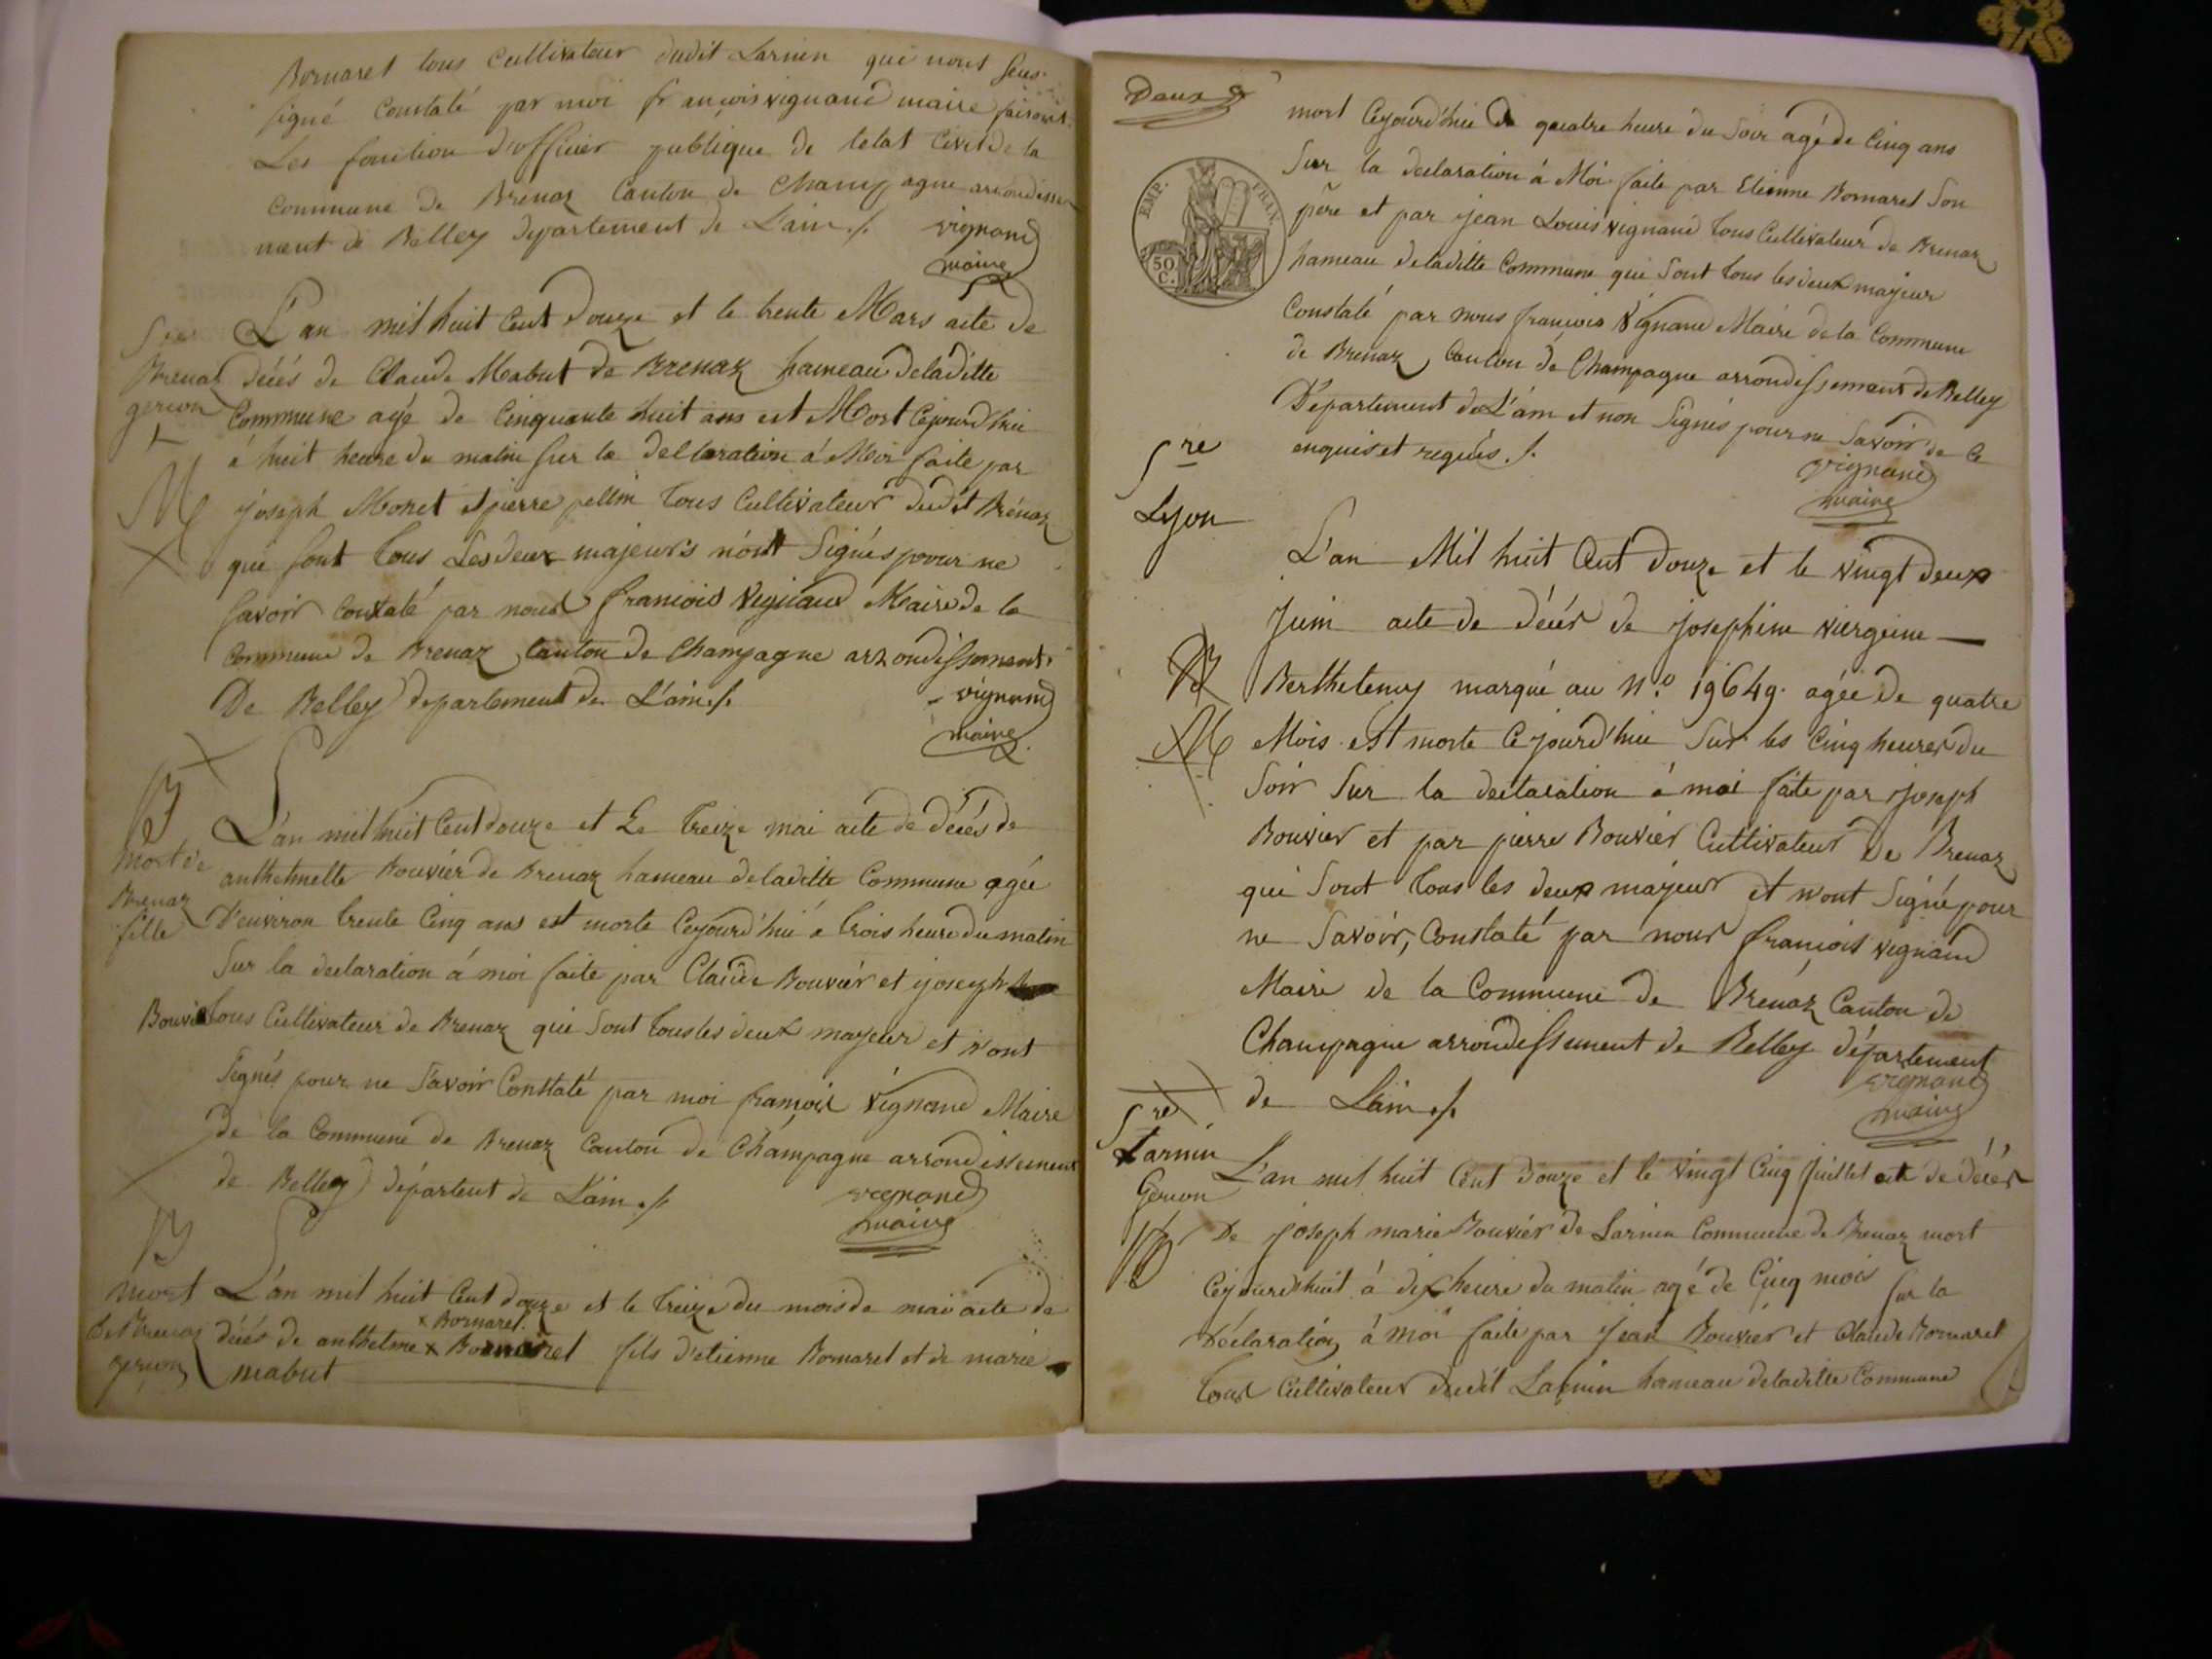 Bornaret tous Cultivateur dudit Larnin qui nont Sous
signé Constaté par moi françois vignand maire faisant
Les fonction d'officier publique de letat Civil de la
Commune de Brénaz Canton de Champagne arrondisse
ment de Belley departement de L'ain ./.
vignand
maire
Brenaz
garcon
M
L'an mil huit Cent douze et le trente Mars acte de
décés de Claude Mabut de Brenaz hameau deladitte
Commune agé de Cinquante huit ans est Mort Cejourd'hui
á huit heure du matin sur la dellaration á Moi faite par
joseph Monet et pierre pellin tous Cultivateur dudit Brénaz
qui sont tous Les deux majeurs n'ont Signés pour ne
savoir Constaté par nous françois vignand Maire de la
Commune de Brenaz Canton de Champagne arrondissement
De Belley departement de L'ain ./.
vignand
maire
B
mort de
Brenaz
fille
L'an mil huit Cent douze et Le treize mai acte de décés de
anthelmette Bouvier de Brenaz hameau deladitte Commune agée
D'environ trente Cinq ans est morte Cejourd'hui á trois heure du matin
Sur la declaration á moi faite par Claude Bouvier et joseph
Bouvier tous Cultivateur de Brenaz qui Sont tous les deux majeur et n'ont
Signés pour ne Savoir Constaté par moi françois vignand Maire
de la Commune de Brenaz Canton de Champagne arrondissement
de Belley départent de L'ain ./.
vignand
maire
B
mort
de Brenaz
garcon
L'an mil huit Cent douze et le treize du mois de mai acte de
x Bornaret.
décés de anthelme x Bornaret fils d'etienne Bornaret et de marie
mabut
Deux
EMP. FRAN.
50 C.
mort Cejourd'hui á quatre heure du Soir agé de Cinq ans
Sur la declaration á Moi faite par Etienne Bornaret Son
pere et par jean Louis vignand tous Cultivateur de Brenaz
hameau deladitte Commune qui Sont tous les deux majeur
Constaté par nous françois Vignand Maire de la Commune
de Brenaz Canton de Champagne arrondissement de Belley
Département de L'ain et non Signés pour ne Savoir de Ce
enquis et requis ./.
vignand
maire
Sre
Lyon
B
M
L'an Mil huit Cent douze et le vingt deux
Juin acte de décés de josephine viergeine
Berthelemy marqué au N.o 19649. agée de quatre
Mois est morte Cejourd'hui Sur les Cinq heures du
Soir Sur la declaration á moi faite par Joseph
Bouvier et par pierre Bouvier Cultivateur De Brenaz
qui Sont tous les deux majeur et n'ont Signé pour
ne Savoir, Constaté par nous françois vignand
Maire de la Commune de Brénaz Canton de
Champagne arrondissement de Belley département
de L'ain ./.
vignand
maire
Sre
Larnin
Gercon
B
L'an mil huit Cent douze et le vingt Cinq juillet acte de décés
De joseph marie Bouvier de Larnin Commune de Brenaz mort
Cejourd'huit á dix heure du matin agé de Cinq mois Sur la
Déclaration á moi faite par Jean Bouvier et Claude Bornaret
tous Cultivateur dudit Larnin hameau deladitte Commune